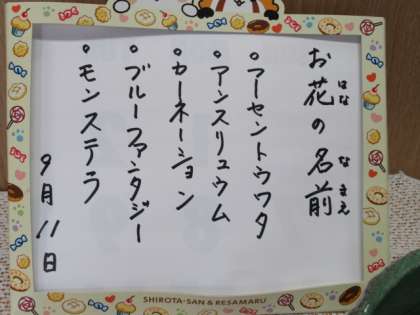 お花の名前
はな なまえ
・アーセントウワタ
・アンスリュウム
・カーネーション
・ブルーファンタジー
・モンステラ
9月11日
SHIROTA-SAN & RESAMARU